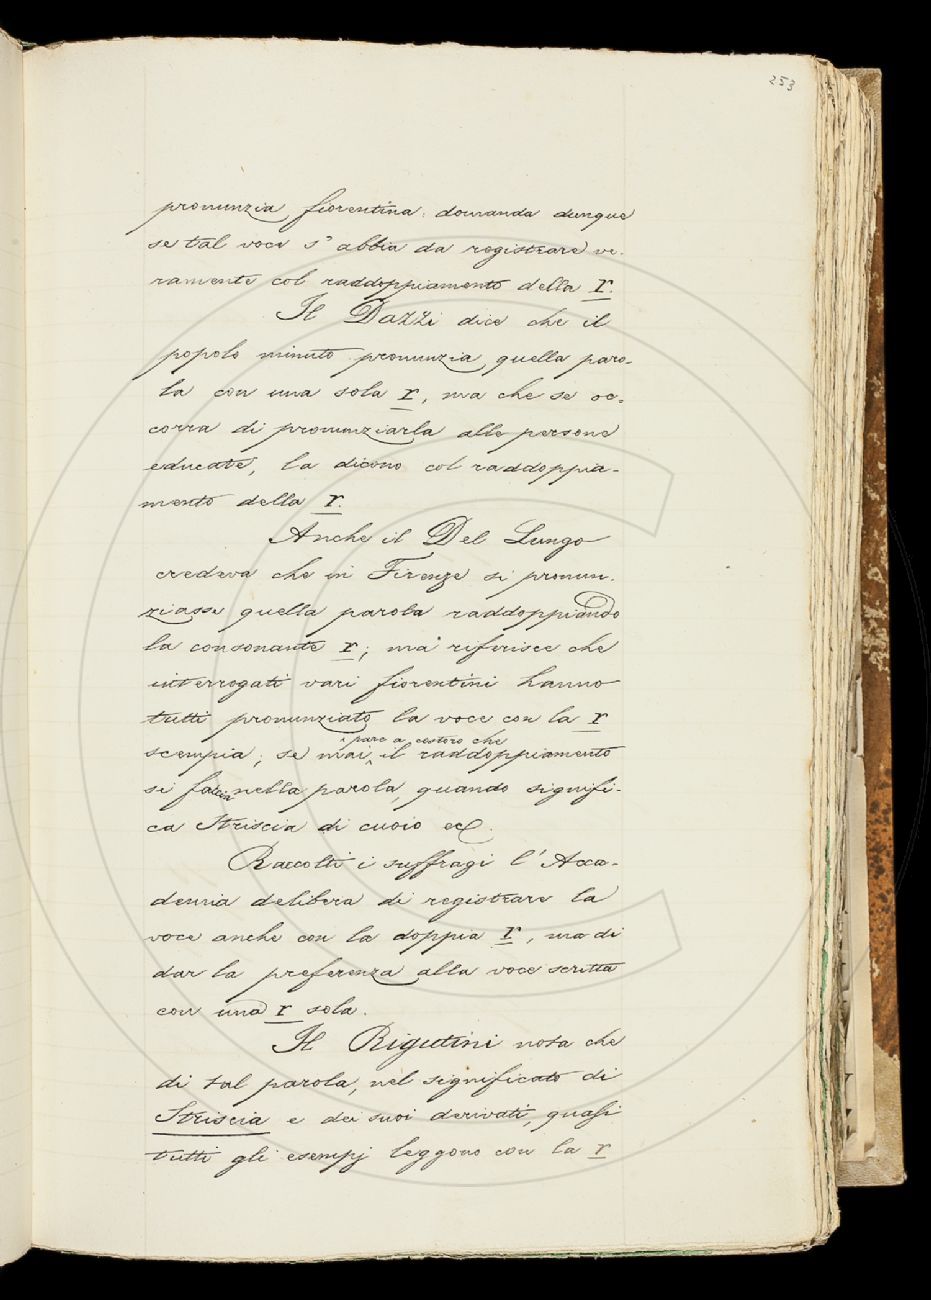 253
pronunzia fiorentina: domanda dunque
se tal voce s'abbia da registrare ve-
ramente col raddoppiamento della r.
Il Dazzi dice che il
popolo minuto pronunzia quella paro-
la con una sola r, ma che se oc-
corra di pronunziarla alle persone
educate, la dicono col raddoppia-
mento della r.
Anche il Del Lungo
credeva che in Firenze si pronun-
ziasse quella parola raddoppiando
la consonante r; ma riferisce che
interrogati vari fiorentini hanno
tutti pronunziato la voce con la r
pare a costoro che
scempia; se mai il raddoppiamento
si faccia nella parola, quando signifi-
ca Striscia di cuoio ec.
Raccolti i suffragi l'Acca-
demia delibera di registrare la
voce anche con la doppia r, ma di
dar la preferenza alla voce scritta
con una r sola.
Il Rigutini nota che
di tal parola, nel significato di
Striscia e dei suoi derivati, quasi
tutti gli esempj leggono con la r